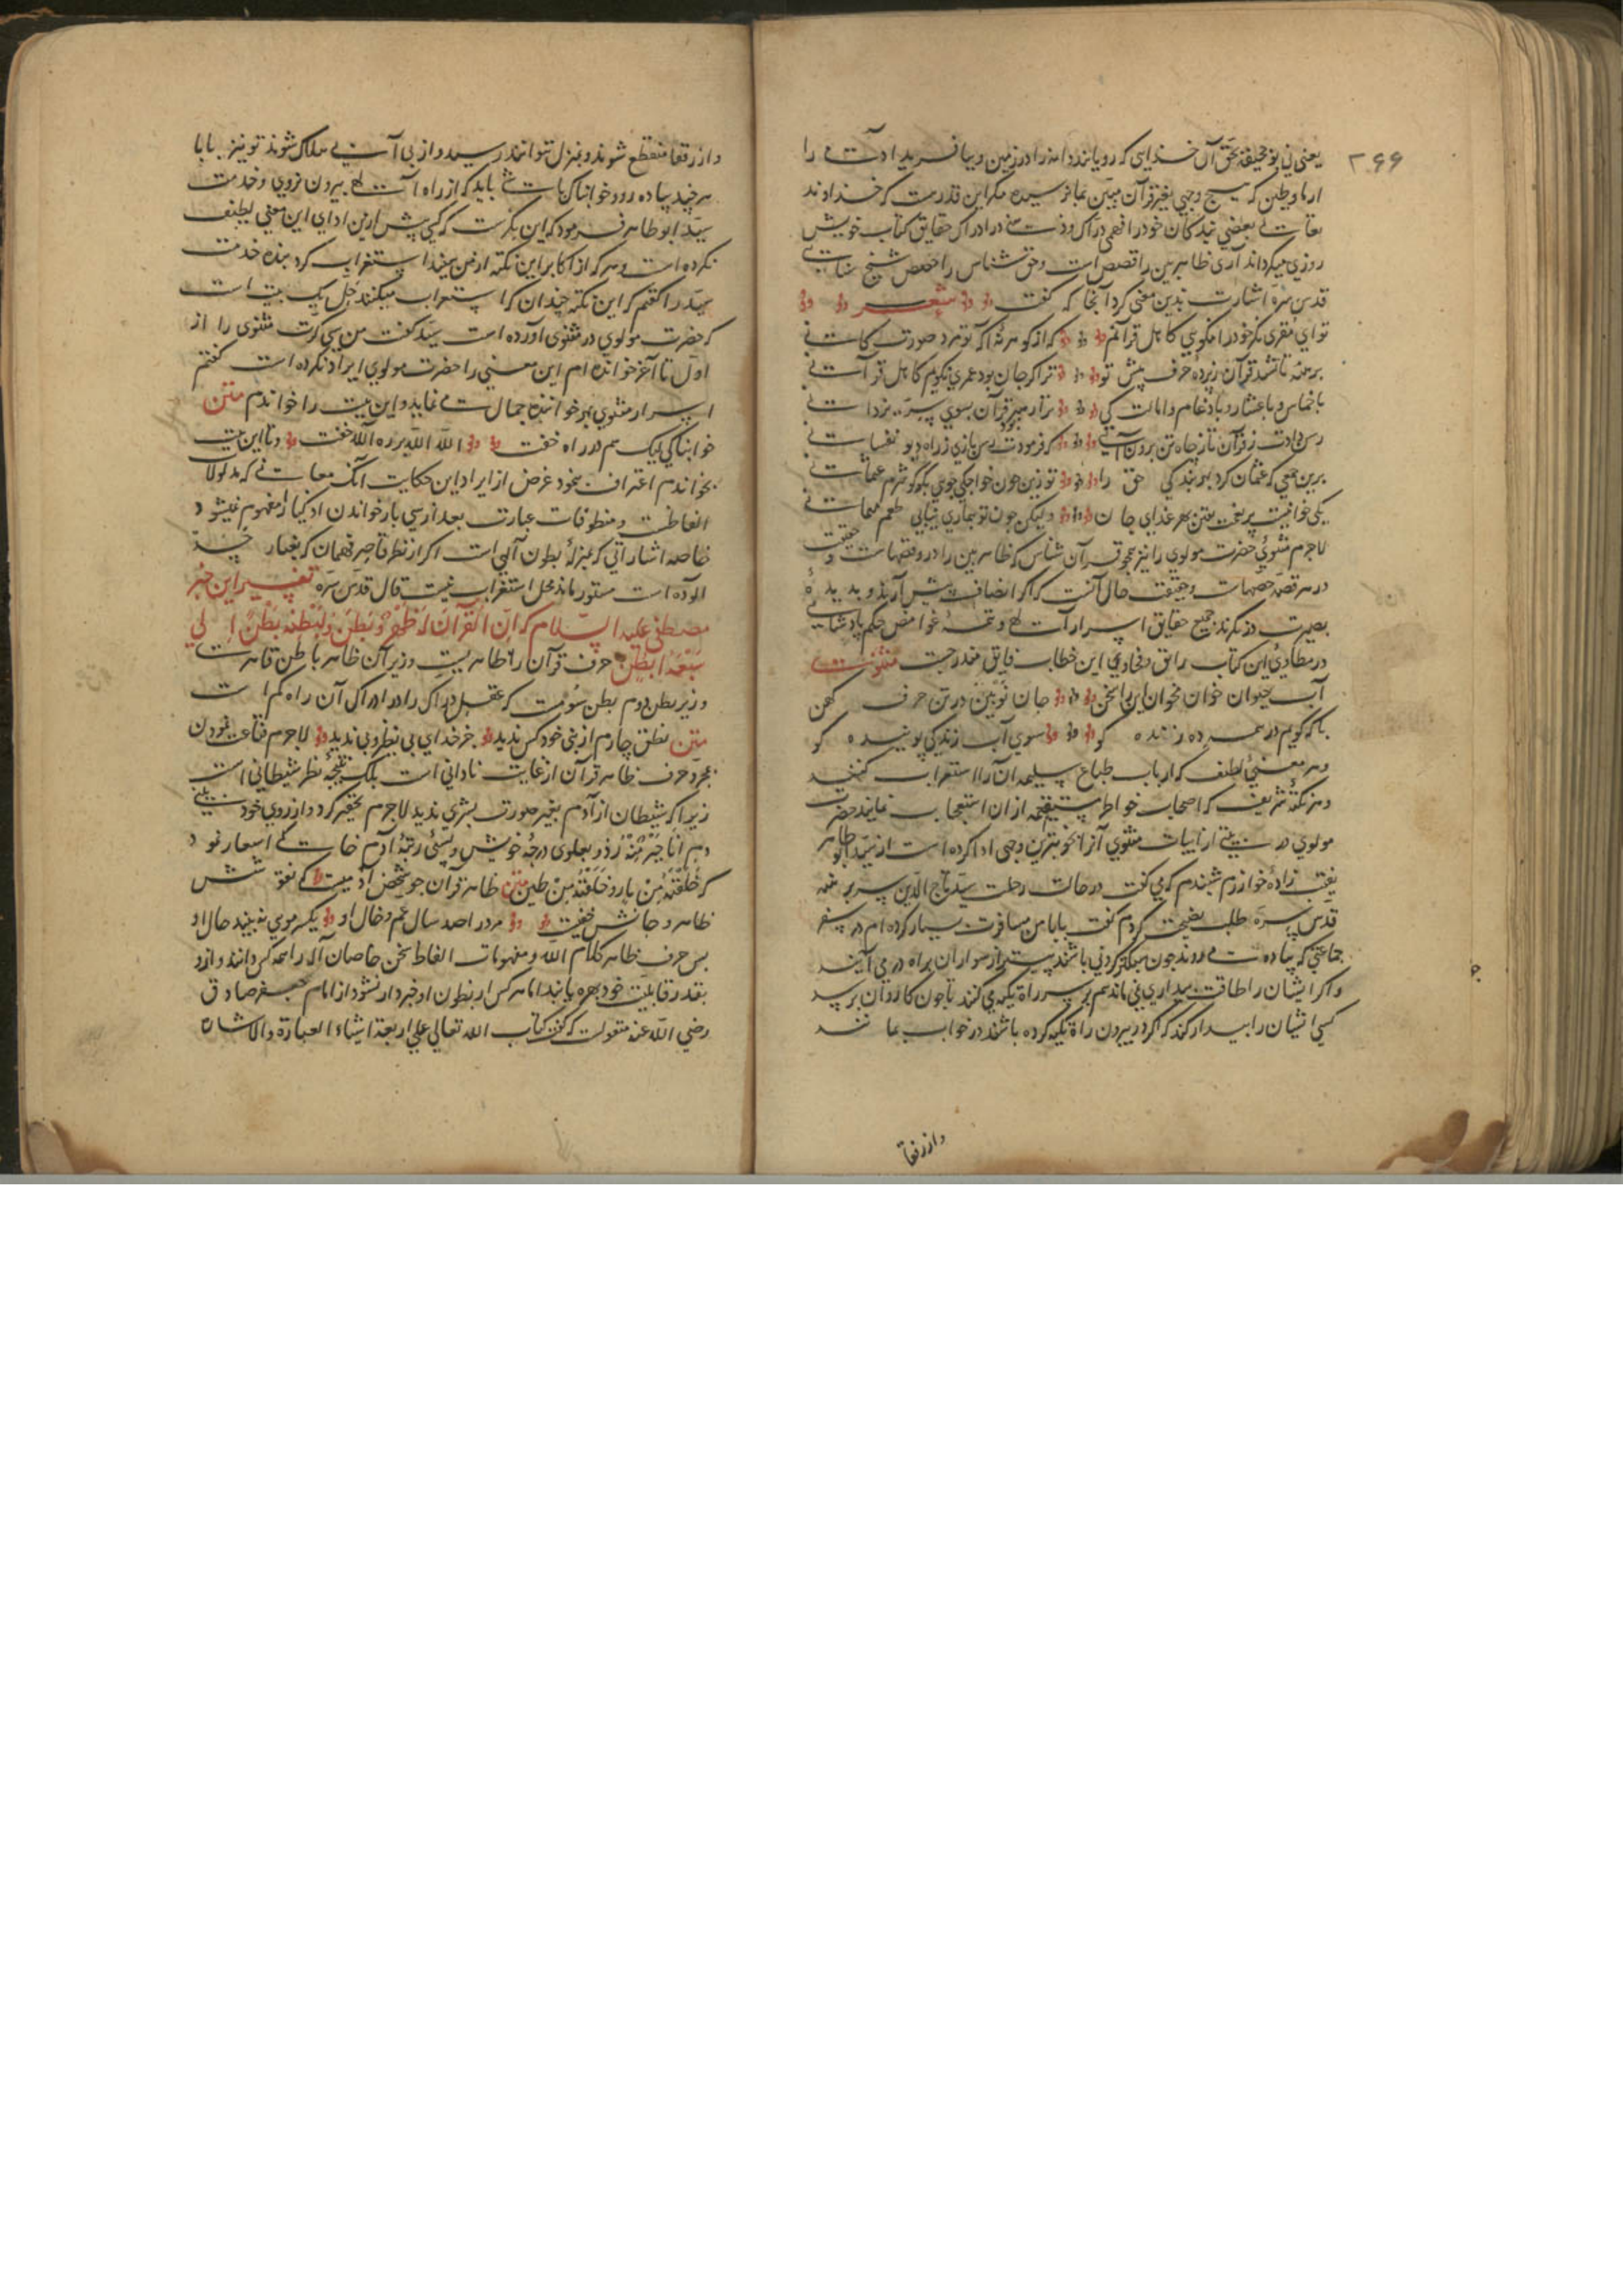 ۲۶۶
یعنی نی بحق آن خدایی که رویاننده دانه را در زمین و بیافریند آدمی را
که هیچ وجهی بغیر قرآن مبین بما نرسیده مکر این قدر هست که خداوند
تعالی بعضی بندکان خود را فهمی درّاک و ذهنی در ادراک حقایق کتاب خویش
روزی میکرداند آری ظاهربین را قصص است و حق شناس را حصص شیخ سنایی
قدس سرّه اشارت بدین معنی کرد آنجا که کفت شعر
تو ای مقری مکر خود را نکویی کاهل قرآنم که از کوهر نهٔ آکه تو مرد صورت کانی
برهنه تا نشد قرآن ز پردهٔ حرف پیش تو ترا کر جان بود عمری نکویم کاهل قرآنی
باخماس و باعشار و بادغام و امالت کی ترا رهبر بود قرآن بسوی سرّ یزدانی
رسن دادت ز قرآن تا ز چاه تن برون آیی که فرمودت رسن بازی ز راه دیو نفسانی
بدین معنی که عثمان کرد بهر بندکی حق را تو زین چون خواجکی جویی بکو کو شرم عثمانی
یکی خوانیست پر نعمت بهر غذای جان ولیکن چون تو بیماری نیابی طعم مهمانی
لاجرم مثنوی حضرت مولوی را نیز همچو قرآن شناس که ظاهربین را در و قصهاست و حقیقت
در هر قصه حصهاست و حقیقت حال آنست که اکر انصاف پیش آرند و بدیدهٔ
بصیرت در نکرند جمیع حقایق اسرار الهی و تتمهٔ غوامض حکم پادشاهی
در مطاوی این کتاب رایق و فحاوی این خطاب فایق مندرجست مثنوی
آب حیوان خوان مخوان این را سخن جان نو بین در تن حرف کهن
با که کویم در همه ده زنده کو سوی آب زندکی پوینده کو
و هر معنی لطیف که ارباب طباع سلیمه آن را استغراب کنند
و هر نکتهٔ شریف که اصحاب خواطر مستقیمه از آن استعجاب نمایند حضرت
مولوی در بیتی از ابیات مثنوی آنرا بخوبترین وجهی ادا کرده است از سید ابو طاهر
نقیب زادهٔ خوارزم شنیدم که می کفت در حالت رحلت سید تاج الدین سر برهنه
قدس سرّه طلب نصیحت کردم کفت بابا من مسافرت بسیار کرده ام در سفر
جماعتی که پیاده می روند چون سبکتر کردنی باشند پیشتر از سواران براه در می آیند
و اکر ایشان را طاقت بیداری نمی ماند هم بر سر راه تکیه می کنند تا چون کاروان برسد
کسی ایشان را بیدار کند که اکر در بیرون راه تکیه کرده باشند در خواب بمانند
واز رفقا
و از رفقا منقطع شوند و بمنزل نتوانند رسید و از بی آبی هلاک شوند تو نیز بابا
هر چند پیاده رود خوابناک باشی باید که از راه الهی بیرون نروی و خدمت
سید ابوطاهر فرمود که این بکرست که کسی پیش از من ادای این معنی لطیف
نکرده است و هر که از اکابر این نکته از من شنید استغراب کرد بنده خدمت
سید را کفتم که این نکته چندان که استغراب میکنند حل یک بیت است
که حضرت مولوی در مثنوی آورده است سید کفت من سی کرت مثنوی را از
اول تا آخر خوانده ام این معنی را حضرت مولوی ایراد نکرده است کفتم
اسرار مثنوی بهر خواننده جمال نمی نماید و این بیت را خواندم متن
خوابناکی لیک هم در راه خفت الله الله بر ره الله خفت و تا این بیت
بخواندم اعتراف نمود غرض از ایراد این حکایت آنکه معانی که مدلولات
الفاظست و منطوقات عبارت بعد از سی بار خواندن اذکیا را مفهوم نمیشود
خاصه اشاراتی که بمنزلهٔ بطون الهی است اکر از نظر قاصر فهمان که بغبار
آلوده است مستور ماند محل استغراب نیست قال قدس سرّه تفسیر این خبر
مصطفی علیه السّلام که اِنّ القرآن له ظهر و بطن و لبطنه بطن الی
سبعة ابطن حرف قرآن را ظاهریست وزیر آن ظاهر باطن قاهریست
وزیر بطن دوم بطن سومست که عقل درّاک را در ادراک آن راه کم است
متن بطن چارم از نبی خود کس ندید جز خدای بی نظیر و بی ندید لاجرم قناعت نمودن
بمجرد حرف ظاهر قرآن از غایت نادانی است بلک نتیجهٔ نظر شیطانی است
زیرا که شیطان از آدم بغیر صورت بشری ندید لاجرم تحقیر کرد و از روی خود بینی
دم انا خیر منه زد و بعلوی درجهٔ خویش و پستی رتبهٔ آدم خاکی اشعار نمود
که خلقتنی من نار و خلقته من طین متن ظاهر قرآن چو شخص آدمیست که نقوشش
ظاهر و جانش خفیست مرد را صد سال عم و خال او یکسر مویی نه بیند حال او
پس حرف ظاهر کلام الله و مفهومات الفاظ سخن خاصان اله را همه کس دانند و از و
بقدر قابلیت خود بهره یابند اما هر کس از بطون او خبردار نشود از امام جعفر صادق
رضی الله عنه منقولست که کفت کتاب الله تعالی علی اربعة اشیاء العبارة والاشارة